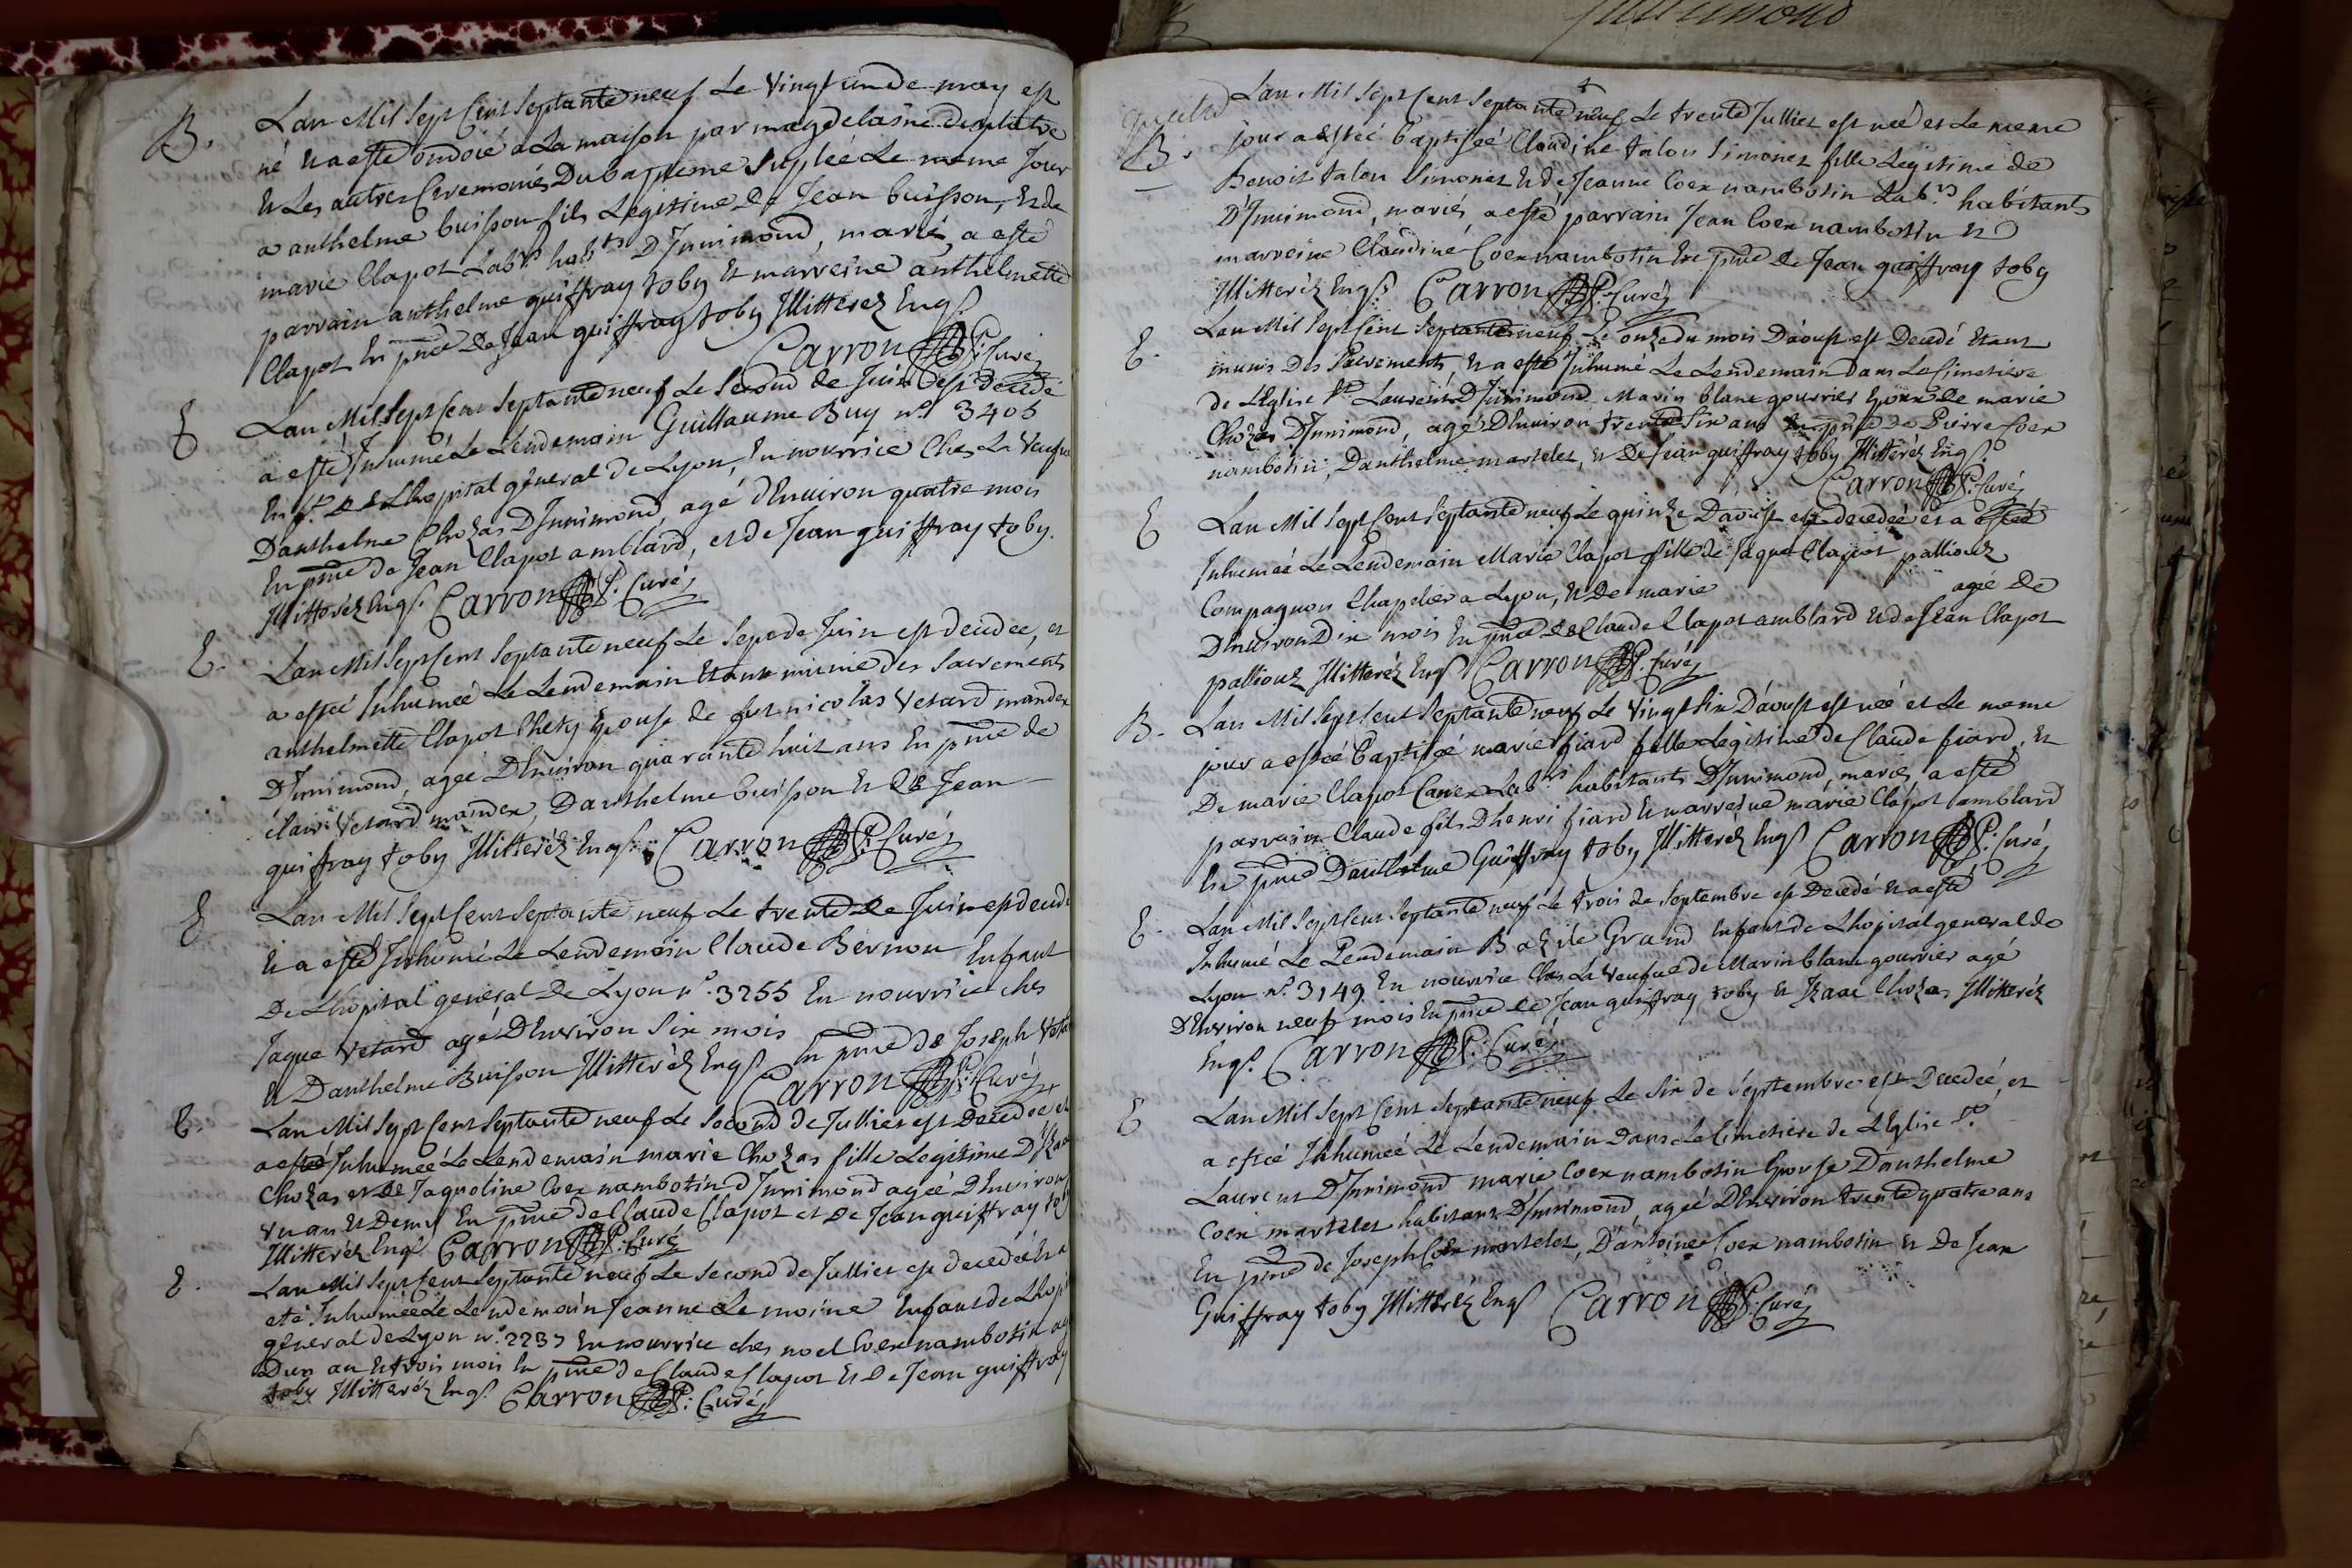 B.
Lan Mil Sept Cent Septante neuf Le Vingt un de may est
né et a esté ondoié a La maison par magdelaine
et Les autres Ceremonies Du bapteme Supleé Le meme Jour
a anthelme buisson fils Legitime de Jean buisson, et de
marie Clapot Labrs habts D'Innimond, mariés, a esté
parrain anthelme guiffray toby et marreine anthelmette
Clapot En pnce de Jean guiffray toby Illitteréz Enqs
Carron P: Curé
E
Lan Mil Sept Cent Septante neuf Le Second de Juin est decedé
a esté Inhumé Le Lendemain Guillaume Buy no 3405
Enft de Lhopital général de Lyon, En nourrice Ches La Veufve
Danthelme Chozas D'Innimond, agé d'Environ quatre mois
En pnce de Jean Clapot amblard, et de Jean guiffray toby.
Illitteréz Enqs. Carron P: Curé
E.
Lan Mil Sept Cent Septante neuf Le Sept de Juin est decedee, et
a esteé Inhumeé Le Lendemain Etant munie des Sacrements
anthelmette Clapot Chety Epouse de fut nicolas Vetard mander
D'Innimond, ageé D'Environ quarante huit ans En pnce de
Vetard mander, Danthelme buisson et de Jean
guiffray toby Illitteréz Enqs. Carron P: Curé
E
Lan Mil Sept Cent Septante neuf Le trente de Juin est decedé
Et a esté Inhumé Le Lendemain Claude Bernon Enfant
De Lhopital général de Lyon no. 3255 En nourrice ches
Jaque Vetard agé D'Environ Six mois En pnce de Joseph
et Danthelme Buisson Illitteréz Enqs Carron P: Curé
E.
Lan Mil Sept Cent Septante neuf Le Second de Julliet est Decedeé et
a esteé Inhumeé Le Lendemain marie Chozas fille Legitime
Chozas et de Jaqueline Coex nambotin D'Innimond ageé D'Environ
Vn an et Demy En pnce de Claude Clapot et de Jean guiffray toby
Illitteréz Enqs Carron P: Curé
E.
Lan Mil Sept Cent Septante neuf Le Second de Julliet est decedeé et a
eté Inhumeé Le Lendemain Jeanne Le moine Enfant de
général de Lyon no. 2237 En nourrice ches noel Coex nambotin
Dun an et trois mois En pnce de Claude Clapot et de Jean guiffray
toby Illitteréz Enqs. Carron P: Curé
B.
Lan Mil Sept Cent Septante neuf Le trente Julliet est neé et Le meme
jour a esteé baptiseé Claudine talon Simonet fille Legitime de
Benoit talon Simonet et de Jeanne Coex nambotin Labrs habitants
D'Innimond, mariés, a esté parrain Jean Coex nambotin et
marreine Claudine Coex nambotin En pnce de Jean guiffray toby
Illitteréz Enqs. Carron P: Curé
E.
Lan Mil Sept Cent Septante neuf Le onze du mois D'aoust est Decedé Etant
munis des Sacrements, et a esté Inhumé Le Lendemain dans Le Cimetiere
de L'Eglise St Laurent D'Innimond Marin blanc gourrier Epoux de marie
Chozas D'Innimond, agé D'Environ trente Six ans En pnce de Pierre Coex
nambotin, Danthelme martelet, et de Jean guiffray toby Illitteréz Enqs.
Carron P: Curé
E
Lan Mil Sept Cent Septante neuf Le quinze D'aoust est decedeé et a esteé
Inhumeé Le Lendemain Marie Clapot fille de Jaque Clapot palliouz
Compagnon Chapelier a Lyon, et de marie ageé de
D'Environ Dix mois En pnce de Claude Clapot amblard et de Jean Clapot
palliouz Illitteréz Enqs Carron P: Curé
B.
Lan Mil Sept Cent Septante neuf Le Vingt Six D'aoust est neé et Le meme
jour a esteé baptiseé marie fiard fille Legitime de Claude fiard, et
De marie Clapot Caner Labrs habitants D'Innimond, mariés, a esté
parrain Claude fils D'henri fiard et marreine marie Clapot amblard
En pnce Danthelme Guiffray toby Illitteréz Enqs Carron P: Curé
E.
Lan Mil Sept Cent Septante neuf Le trois de Septembre est Decedé et a esté
Inhumé Le Lendemain Bazile Grand Enfant de Lhopital general de
Lyon no. 3149 En nourrice Ches La Veufve de Marin blanc gourrier agé
D'Environ neuf mois En pnce de Jean guiffray toby et Izaac Chozas Illitteréz
Enqs. Carron P: Curé
E
Lan Mil Sept Cent Septante neuf Le Six de Septembre est Decedeé, et
a esteé Inhumeé Le Lendemain Dans Le Cimetiere de L'Eglise St.
Laurent D'Innimond marie Coex nambotin Epouse Danthelme
Coex martelet habitant D'Innimond, ageé D'Environ trente quatre ans
En pnce de Joseph Coex martelet, D'antoine Coex nambotin et de Jean
Guiffray toby Illitteréz Enqs Carron P: Curé
ARTISTIQUE